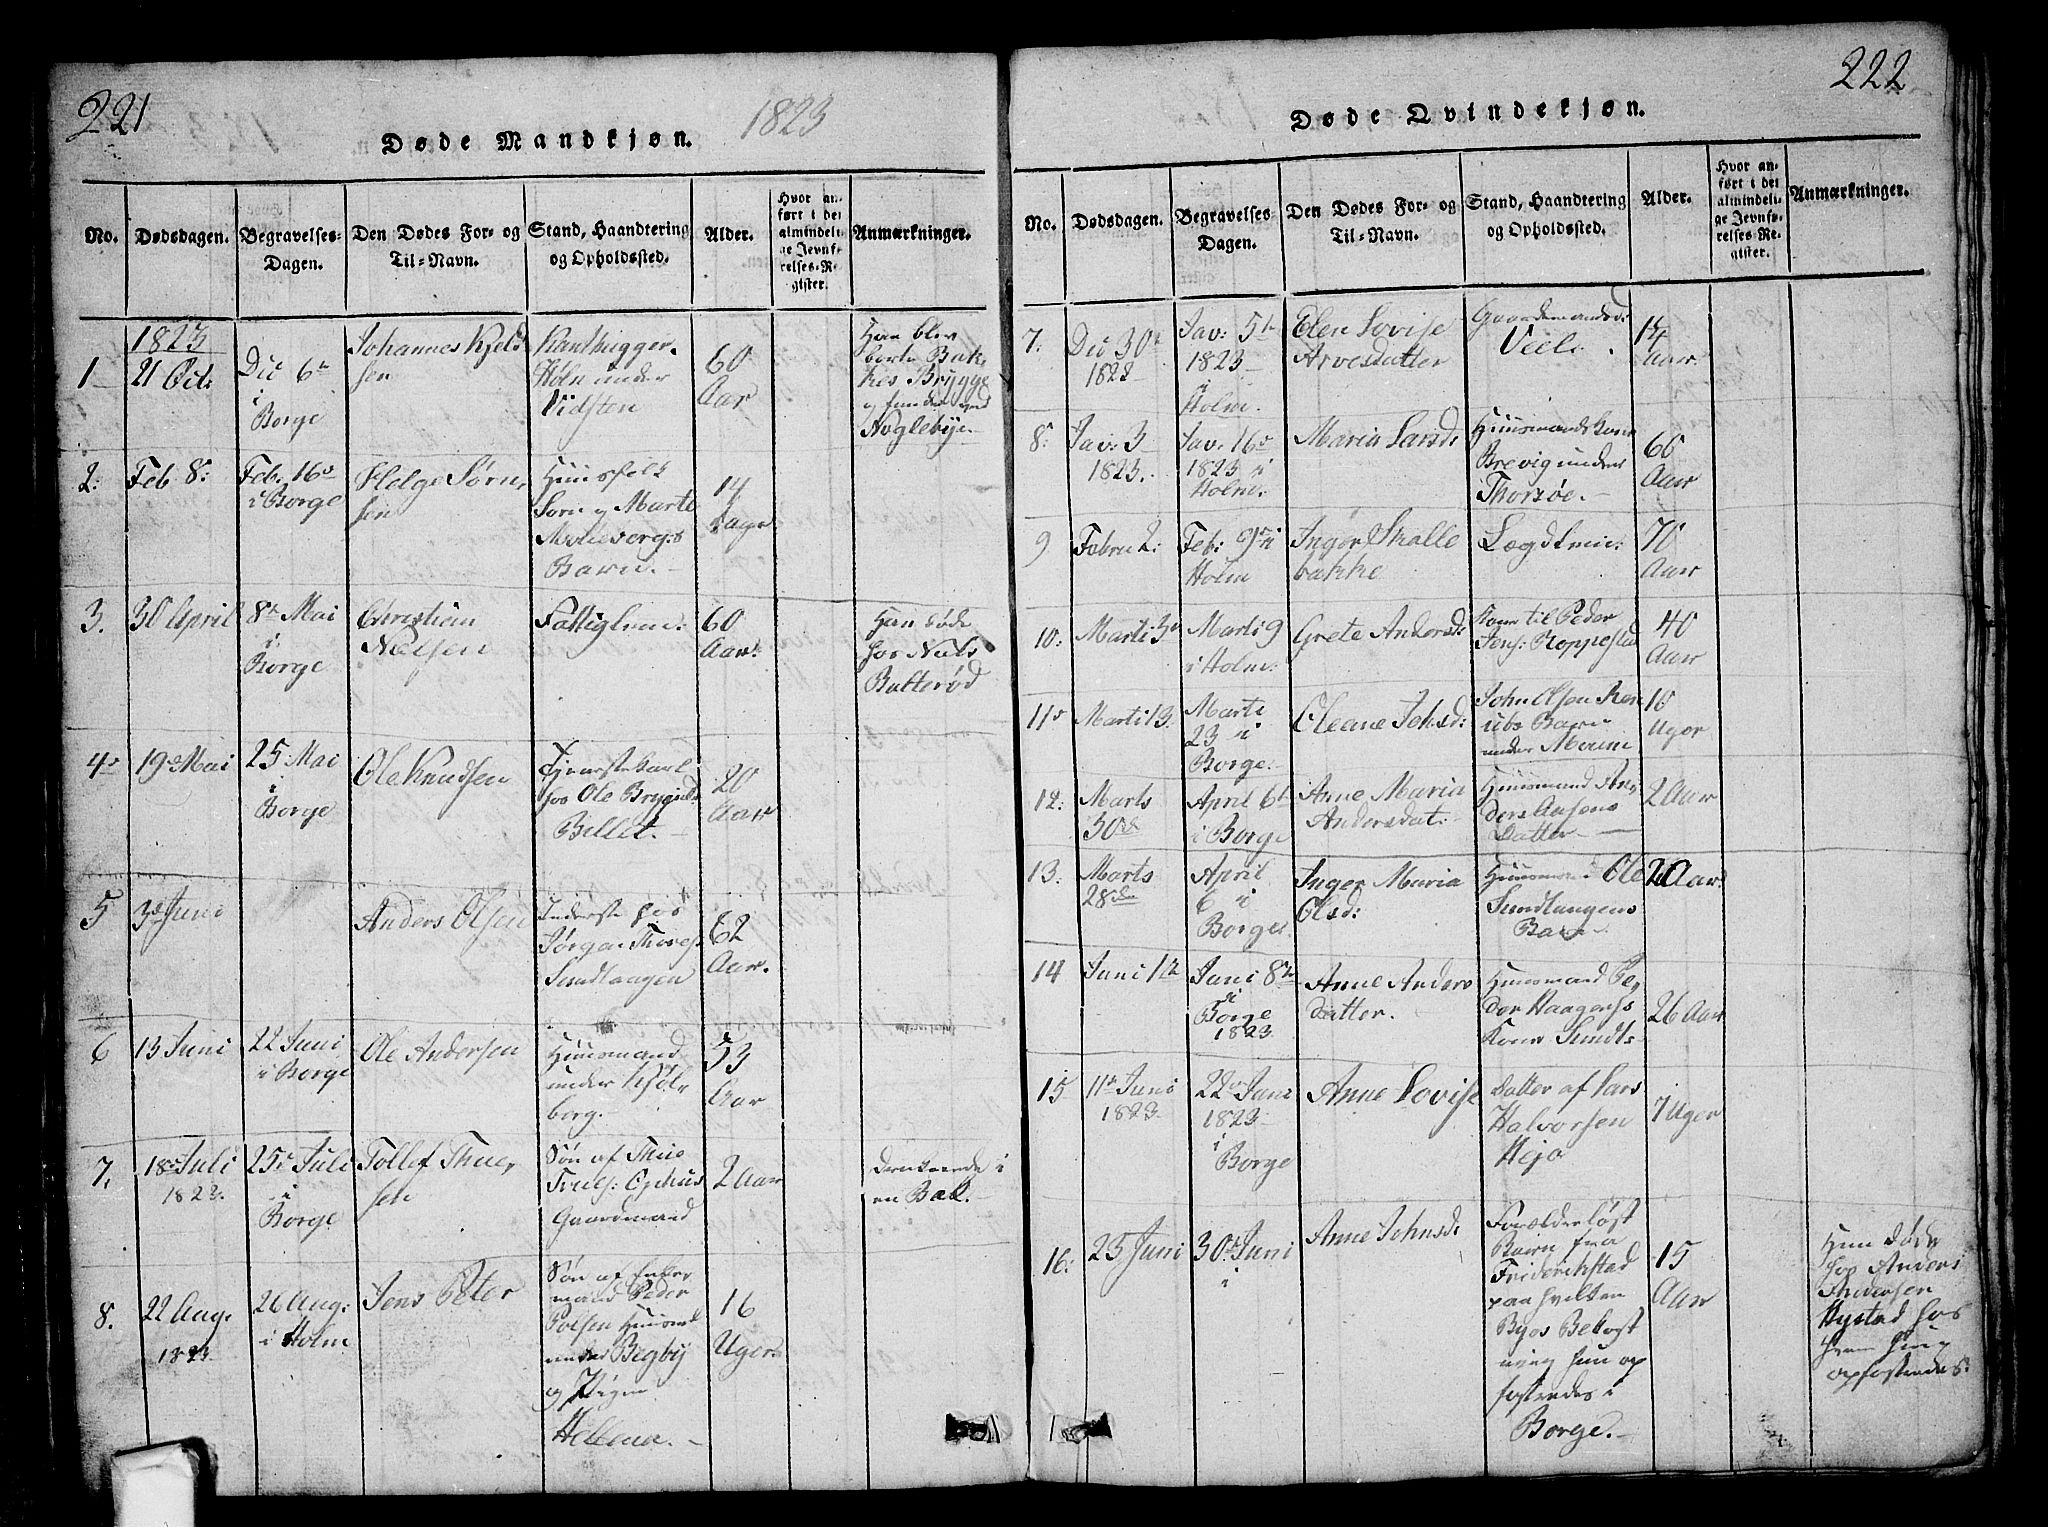 221
1823
Døde Mandkjøn.
No.
Dødsdagen.
Begravelses-
Dagen.
Den Dødes For- og
Til-Navn.
Stand, Haandtering
og Opholdssted.
Alder.
Hvor an-
ført i det
almindeli-
ge Jevnfø-
relses-Re-
gister.
Anmærkninger.
1823
1
21 Oct:
Dec 6
i
Borge
Johannes Kjeld
sen
Holn under
Vidsten
60
Aar
Han blev
borte
Bryggе
Noglebye
2.
Feb 8:
Feb: 16
i Borge
Helge Sørn,
sen
Huusfolk
Sorn og Marte
Barn.
14
Dage
3.
30 April
8 Mai
i
Borge
Christian
Nelsen
Fattiglem:
60
Aar.
Han døde
hos Niels
Butterød
4
19 Mai
25 Mai
i
Borge
Ole Knudsen
Tjenestekarl
hos Ole
20
Aar
5
3 Juni
Anders Olsen
Inderste hos
Jørgen
Sundlangen
62
Aar.
6
13 Juni
22 Juni
i Borge
Ole Andersen
Huusmand
under
borg.
53
Aar
7.
18 Juli
1823.
25 Juli
i
Borge
Tollef Thue,
sen
Søn af Thue
Truls: Ophus
Gaardmand
2 Aar
druknede i
en Bæk.
8.
22 Aug.
1823
26 Aug:
i Holm
Jens Peter
Søn af
mand Peder
Polsen
under Begby
og Pigen
Hellena.
16
Uger
222
Døde Qvindekjøn.
No.
Dødsdagen.
Begravelses-
Dagen.
Den Dødes For- og
Til-Navn.
Stand, Haandtering
og Opholdssted.
Alder.
Hvor an-
ført i det
almindeli-
ge Jevnfø-
relses-Re-
gister.
Anmærkninger.
7.
Dec 30
1822
Jav: 5
1823
i
Holm.
Elen Lovise
Arvesdatter
Gaardemandsd:
14
Aar
8:
Jav: 3
1823.
Jav. 16
1823 i
Holm.
Maria Larsd:
Huusmandskone
Brevig under
Thorsøe.
60
Aar
9
Febru 2:
Feb: 9 i
Holm
Inger Skalle
bakke
Lægdslem:
70
Aar
10:
Marti 3
Marti 9
i Holm.
Grete Andersd:
Kone til Peder
Jens: Roppestad
40
Aar
11
Marti 13.
Marti
23 i
Borge.
Oleane Johsd:
John Olsen
Barn
under
10
Uger
12:
Marts
30
April 6
i Borge
Anne Maria
Andersdat:
Huusmand An,
ders
Datter
2 Aar
13.
Marts
28
April
6 i
Borge
Inger Maria
Olsd:
Ole
Sundlangens
Barn
2 Aar
14
Juni 1
Juni 8
i
Borge
1823
Anne Anders
datter.
Huusmand Pe,
der Haagens:
Kone Sundl:
26 Aar
15
11 Juni
1823.
22 Juni
1823
i
Borge
Anne Lovise
Datter af Lars
Halvorsen
7 Uger
16:
25 Juni
30 Juni
i
Anne Johnsd:
Forælderløst
Barn fra
Friderichstad
paa hvilken
Byes Bekost
ning hun op
fostredes i
Borge.
15
Aar
Hun døde
hos Anders
Andersen
Nystad hos
hvem hun
opfostredes: